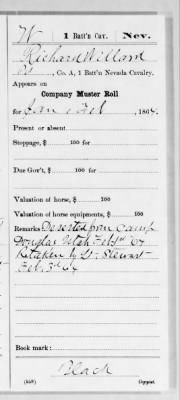 W | 1 Batt'n Cav. | Nev.
Richard Willard
Pvt, Co. A, 1 Batt'n Nevada Cavalry.
Appears on
Company Muster Roll
for Jan & Feb, 1864.
Present or absent
Stoppage, $ 100 for
Due Gov't, $ 100 for
Valuation of horse, $ 100
Valuation of horse equipments, $ 100
Remarks Deserted from Camp
Douglas Utah Feb 1st 64
Retaken by Lt. Stewart
Feb. 3d 64
Book mark:
Black
(358) Copyist.